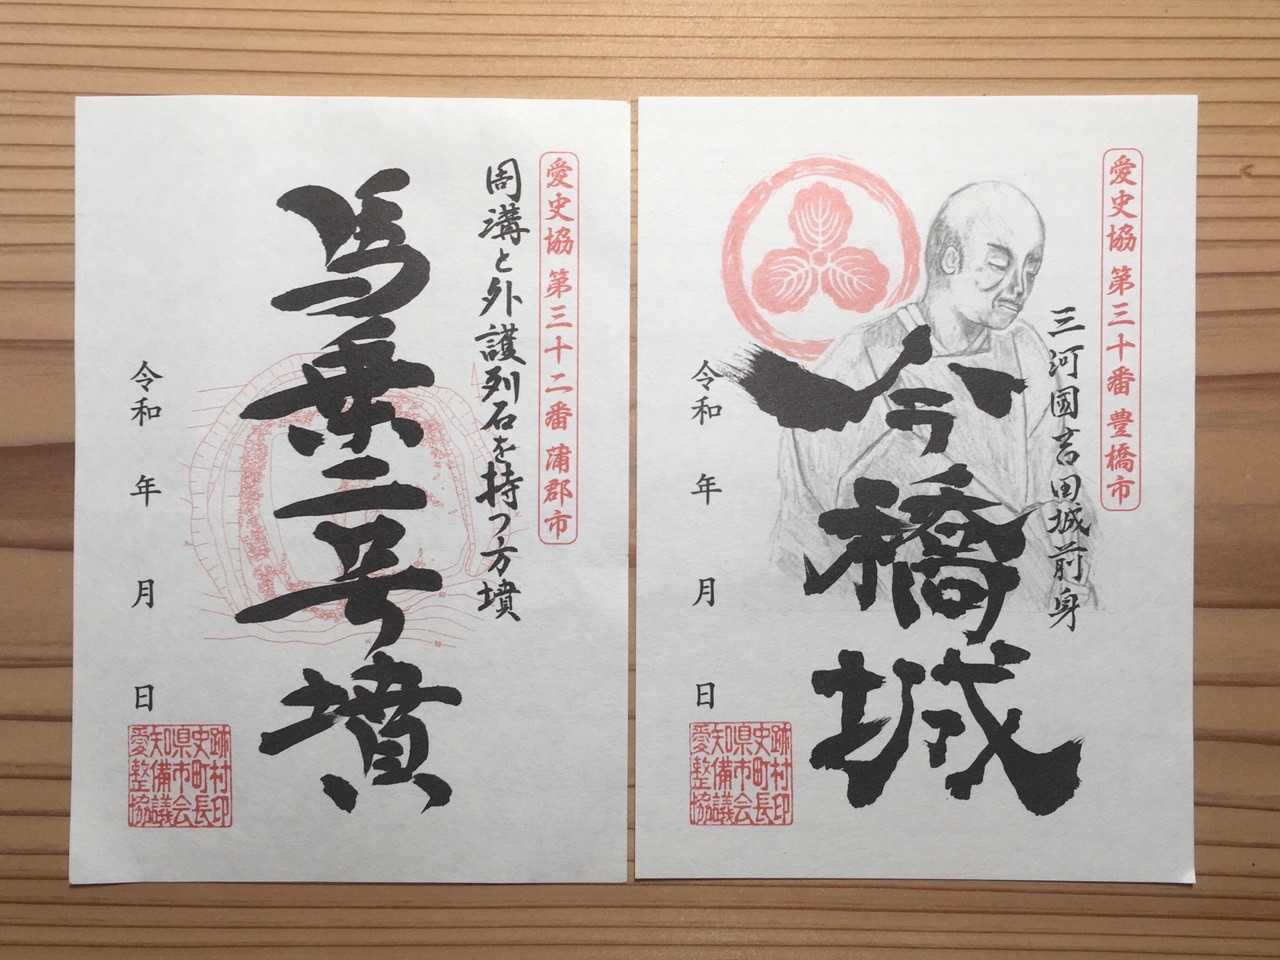 愛史協 第三十番 豊橋市
三河國吉田城前身
今橋城
令和 年 月 日
愛知県史跡
整備市町村
協議会長印
愛史協 第三十二番 蒲郡市
周溝と外護列石を持つ方墳
馬乗二号墳
令和 年 月 日
愛知県史跡
整備市町村
協議会長印